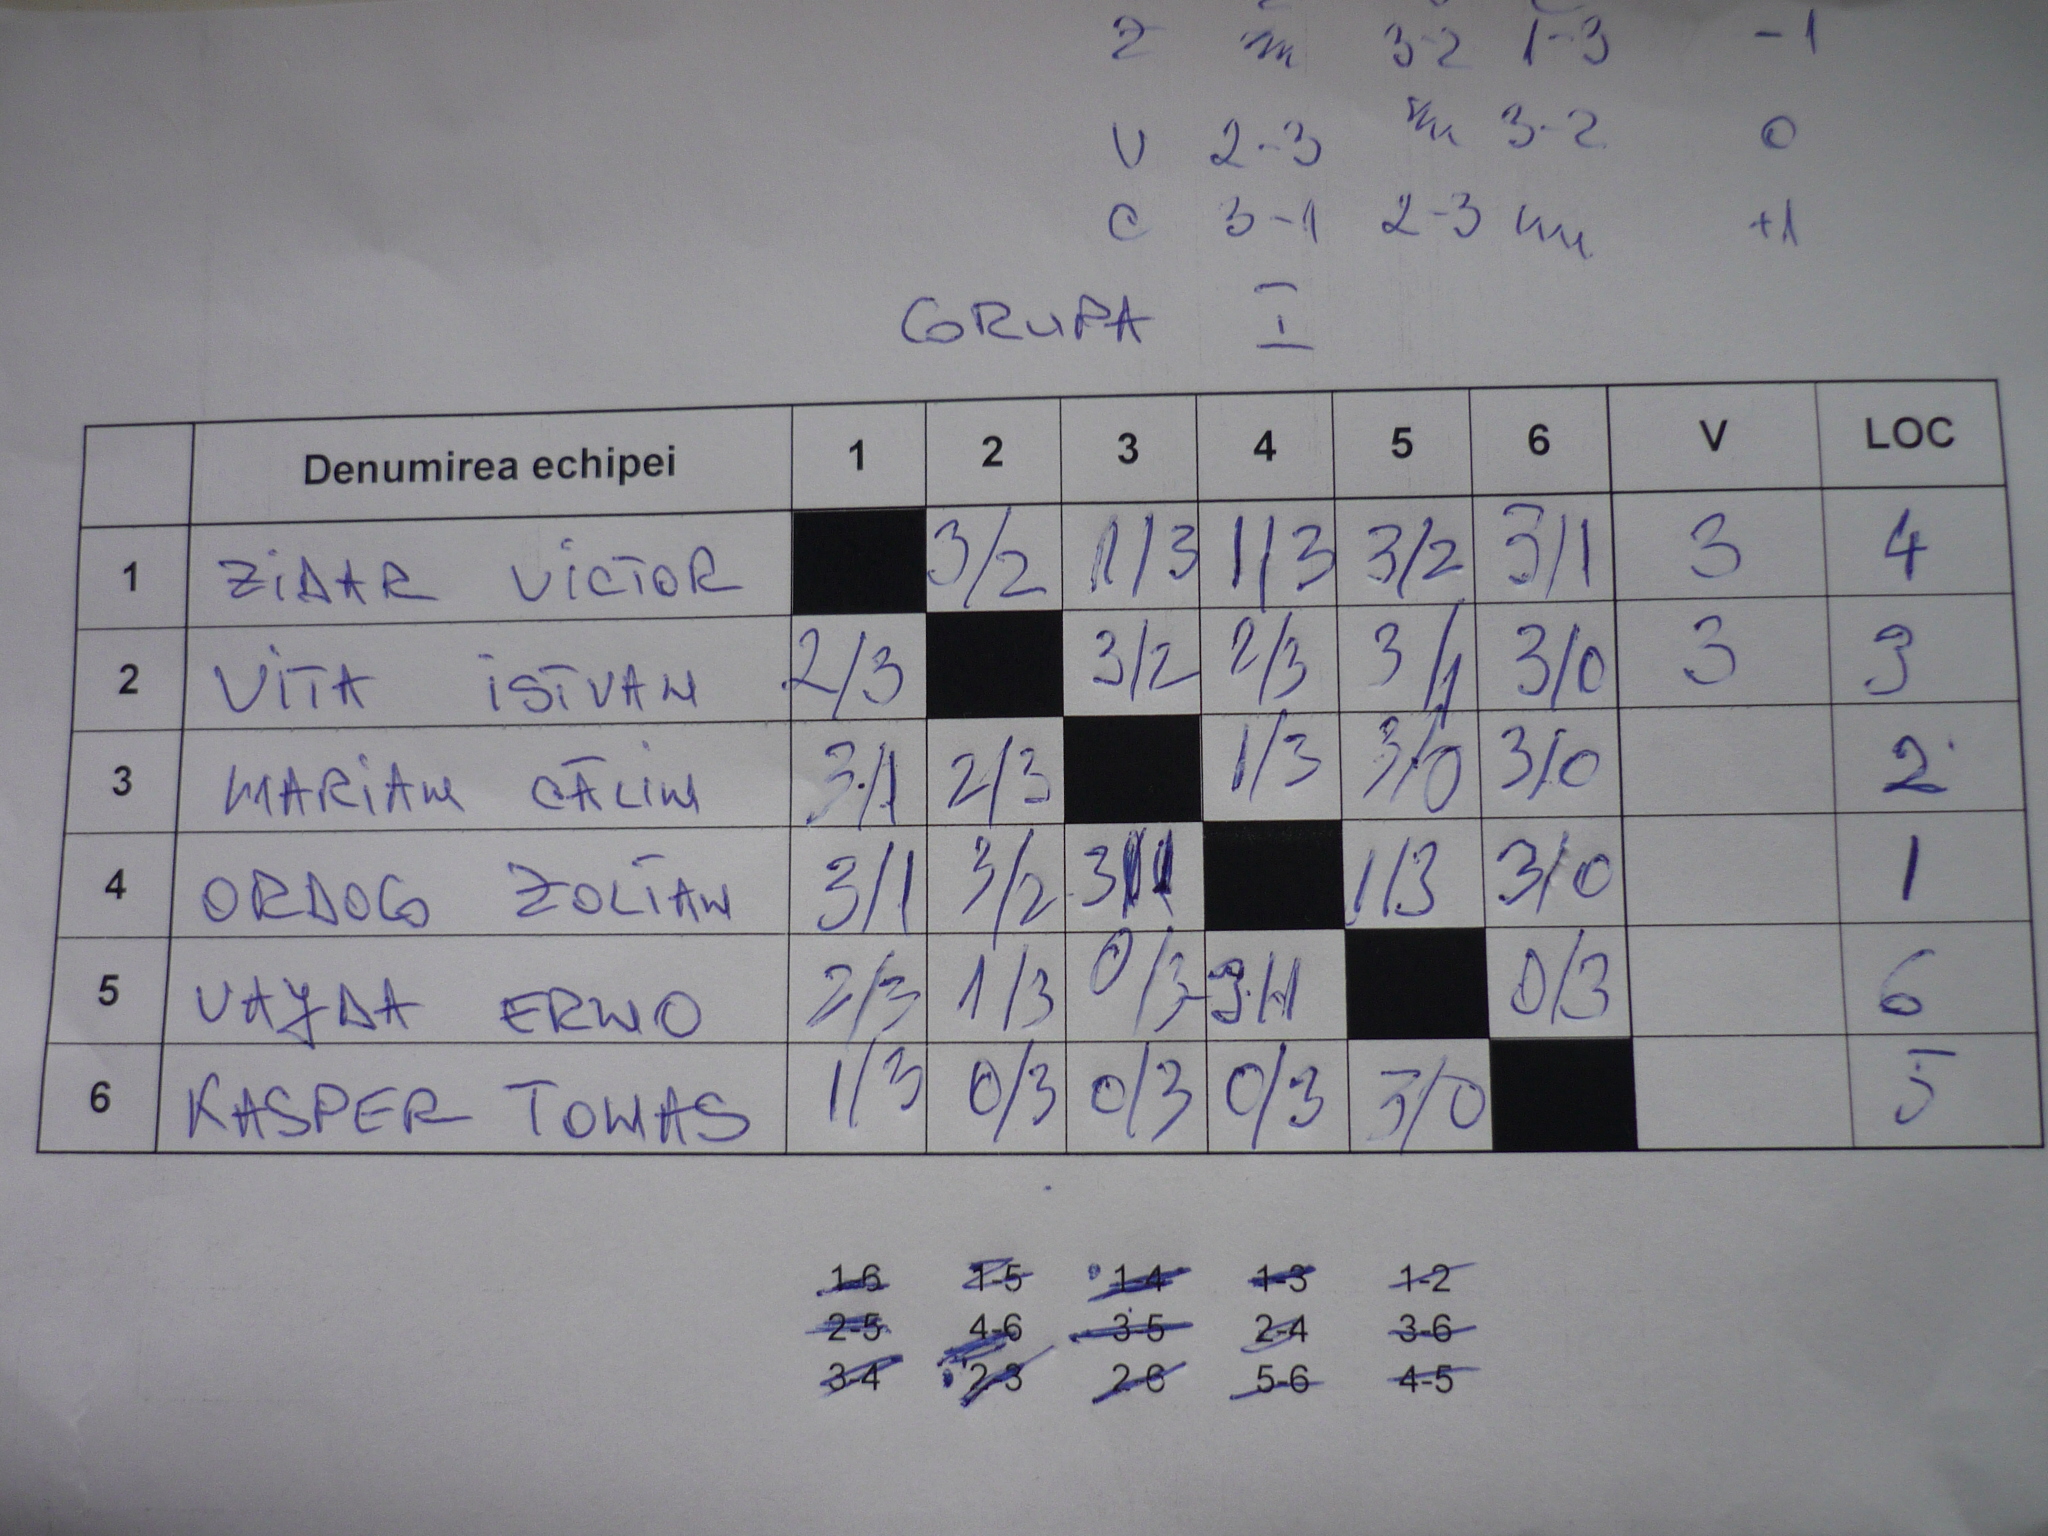 Z 3-2 1-3 -1
V 2-3 3-2 0
C 3-1 2-3 +1
GRUPA I
Denumirea echipei 1 2 3 4 5 6 V LOC
1 ZIDAR VICTOR 3/2 1/3 1/3 3/2 3/1 3 4
2 VITA ISTVAN 2/3 3/2 2/3 3/1 3/0 3 3
3 MARIAN CĂLIN 3/1 2/3 1/3 3/0 3/0 2
4 ORDOG ZOLTAN 3/1 3/2 3/1 1/3 3/0 1
5 VAJDA ERNO 2/3 1/3 0/3 3/1 0/3 6
6 KASPER TOMAS 1/3 0/3 0/3 0/3 3/0 5
1-6 1-5 1-4 1-3 1-2
2-5 4-6 3-5 2-4 3-6
3-4 2-3 2-6 5-6 4-5